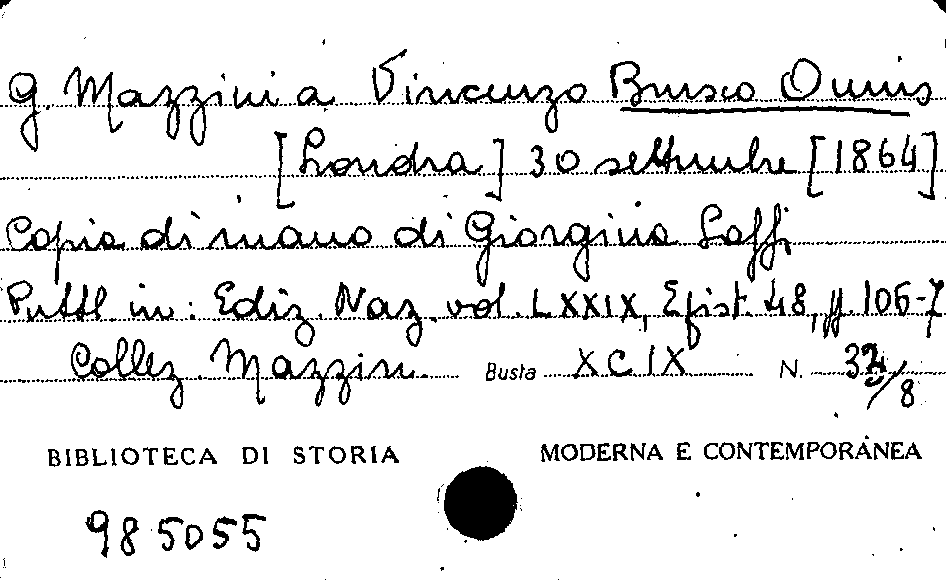 G. Mazzini a Vincenzo Brusco Onnis
[Londra] 30 settembre [1864]
Copia di mano di Giorgina Saffi
Pubbl. in: Ediz. Naz. vol. LXXIX, Epist. 48, pp. 106-7
Collez. Mazzini Busta XCIX N. /8
BIBLIOTECA DI STORIA MODERNA E CONTEMPORANEA
985055